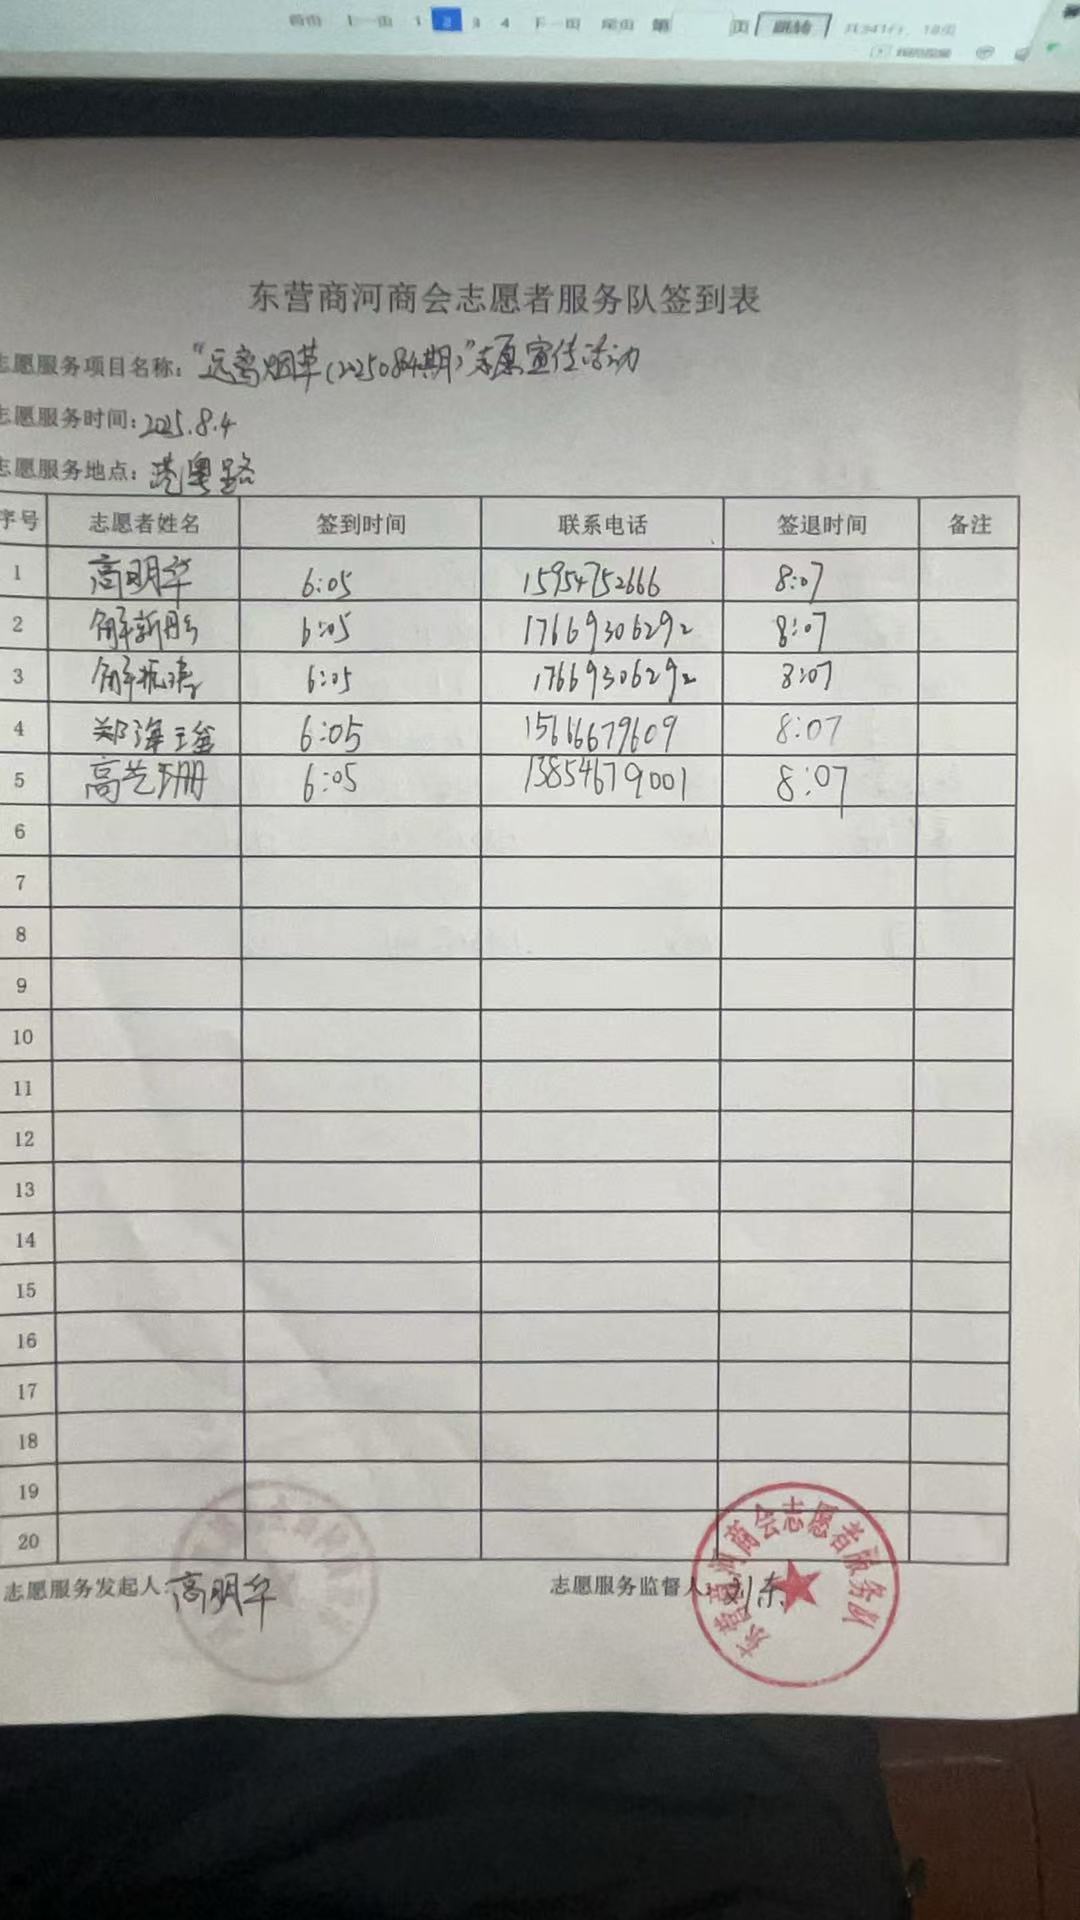 首页 上一页 1 2 3 4 下一页 尾页 第 页 跳转
东营商河商会志愿者服务队签到表
志愿服务项目名称：“远离烟草（2025084期）”志愿宣传活动
志愿服务时间：2025.8.4
志愿服务地点：港粤路
序号 志愿者姓名 签到时间 联系电话 签退时间 备注
1 高明华 6:05 15954752666 8:07
2 解新彤 6:05 17669306292 8:07
3 解 6:05 17669306292 8:07
4 郑海 6:05 15666679609 8:07
5 高艺珊 6:05 13854679001 8:07
6
7
8
9
10
11
12
13
14
15
16
17
18
19
20
志愿服务发起人：高明华 志愿服务监督人：刘东
东营商河商会志愿者服务队